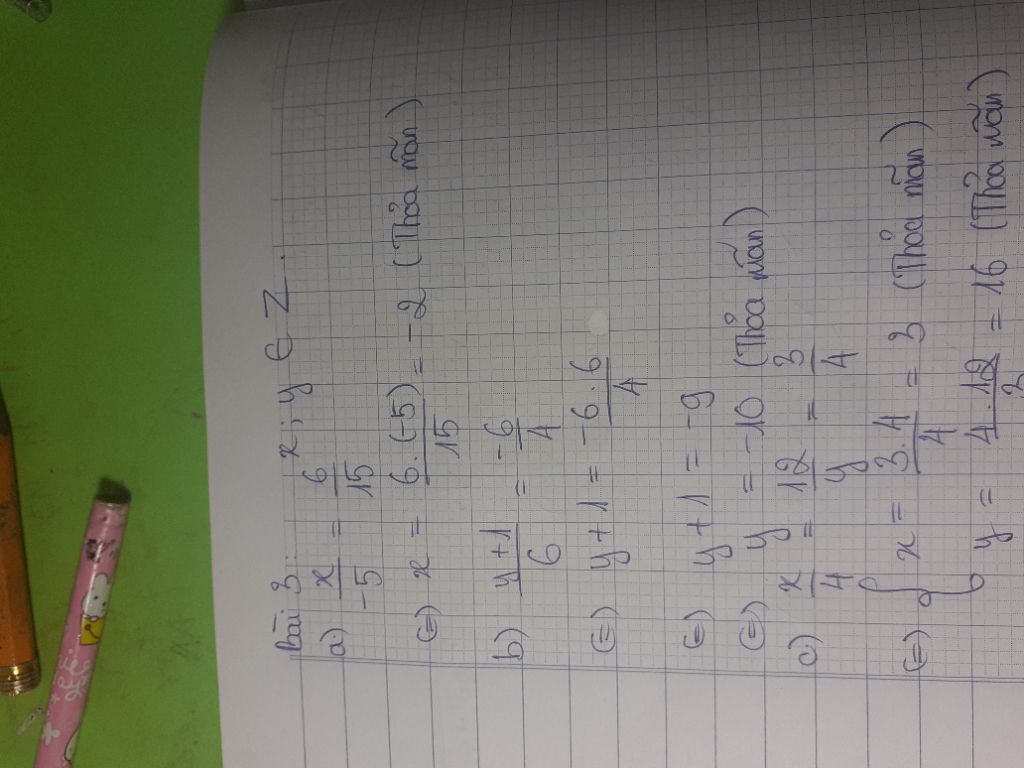 Bài 3: x; y ∈ Z.
a) x/-5 = 6/15
(=) x = 6.(-5)/15 = -2 (Thỏa mãn)
b) y+1/6 = -6/4
(=) y+1 = -6.6/4
(=) y+1 = -9
(=) y = -10 (Thỏa mãn)
c) x/4 = 12/y = 3/4
(=) { x = 3.4/4 = 3 (Thỏa mãn)
y = 4.12/3 = 16 (Thỏa mãn)